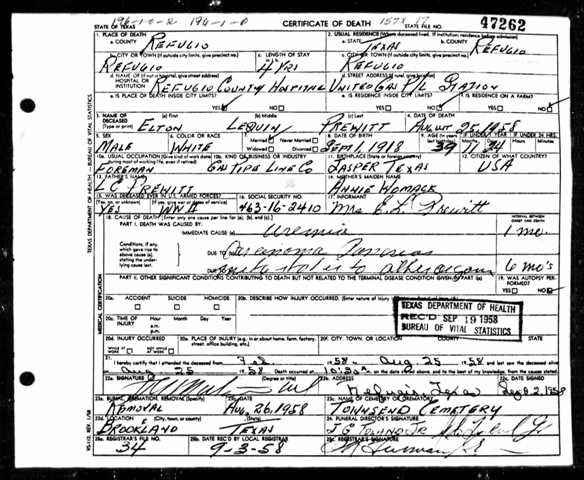 196-1-0-2 196-1-0
STATE OF TEXAS CERTIFICATE OF DEATH STATE FILE NO. 47262
1. PLACE OF DEATH 2. USUAL RESIDENCE (Where deceased lived. If institution: residence before admission)
a. COUNTY REFUGIO a. STATE TEXAS b. COUNTY REFUGIO
b. CITY OR TOWN (If outside city limits, give precinct no.) c. LENGTH OF STAY c. CITY OR TOWN (If outside city limits, give precinct no.)
REFUGIO 4 YRS REFUGIO
d. NAME OF (If not in hospital, give street address) HOSPITAL OR INSTITUTION d. STREET ADDRESS (If rural, give location)
REFUGIO COUNTY HOSPITAL UNITED GAS P/L STATION
e. IS PLACE OF DEATH INSIDE CITY LIMITS? YES NO e. IS RESIDENCE INSIDE CITY LIMITS? YES NO f. IS RESIDENCE ON A FARM? YES NO
3. NAME OF DECEASED (Type or print) (a) First (b) Middle (c) Last 4. DATE OF DEATH
ELTON LEQUIN PREWITT AUGUST 25, 1958
5. SEX 6. COLOR OR RACE 7. Married Never Married Widowed Divorced 8. DATE OF BIRTH 9. AGE IF UNDER 1 YEAR IF UNDER 24 HRS.
MALE WHITE SEPT 1, 1918 39 11 24
10a. USUAL OCCUPATION (Give kind of work done during most of working life, even if retired) 10b. KIND OF BUSINESS OR INDUSTRY 11. BIRTHPLACE (State or foreign country) 12. CITIZEN OF WHAT COUNTRY?
FOREMAN GAS PIPE LINE CO JASPER TEXAS USA
13. FATHER'S NAME 14. MOTHER'S MAIDEN NAME
L C PREWITT ANNIE WOMACK
15. WAS DECEASED EVER IN U.S. ARMED FORCES? 16. SOCIAL SECURITY NO. 17. INFORMANT
YES WW II 463-16-2410 Mrs E. L. Prewitt
18. CAUSE OF DEATH [Enter only one cause per line for (a), (b), and (c).] INTERVAL BETWEEN ONSET AND DEATH
PART I. DEATH WAS CAUSED BY:
IMMEDIATE CAUSE (a) Uremia 1 mo.
Conditions, if any, which gave rise to above cause (a), stating the underlying cause last. DUE TO (b) Carcinoma Pancreas
DUE TO (c) to other organs 6 mo's
PART II. OTHER SIGNIFICANT CONDITIONS CONTRIBUTING TO DEATH BUT NOT RELATED TO THE TERMINAL DISEASE CONDITION GIVEN IN PART I(a) 19. WAS AUTOPSY PERFORMED? YES NO
20a. ACCIDENT SUICIDE HOMICIDE 20b. DESCRIBE HOW INJURY OCCURRED.
20c. TIME OF INJURY Hour Month Day Year a.m. p.m.
TEXAS DEPARTMENT OF HEALTH
REC'D SEP 19 1958
BUREAU OF VITAL STATISTICS
20d. INJURY OCCURRED WHILE AT WORK NOT WHILE AT WORK 20e. PLACE OF INJURY (e.g. in or about home, farm, factory, street, office building, etc.) 20f. CITY, TOWN, OR LOCATION COUNTY STATE
21. I hereby certify that I attended the deceased from Feb 1958 to Aug. 25 1958 and last saw the deceased alive
on Aug 25 1958 Death occurred at 10:30 m. on the date stated above; and to the best of my knowledge, from the causes stated.
22a. SIGNATURE (Degree or title) 22b. ADDRESS 22c. DATE SIGNED
Refugio, Texas Sept 2, 1958
23a. BURIAL, CREMATION, REMOVAL (Specify) 23b. DATE 23c. NAME OF CEMETERY OR CREMATORY
REMOVAL AUG, 26, 1958 TOWNSEND CEMETERY
23d. LOCATION (City, town, or county) (State) 24. FUNERAL DIRECTOR'S SIGNATURE
BROOKLAND TEXAS
25a. REGISTRAR'S FILE NO. 25b. DATE REC'D BY LOCAL REGISTRAR 25c. REGISTRAR'S SIGNATURE
34 9-3-58
TEXAS DEPARTMENT OF HEALTH — BUREAU OF VITAL STATISTICS
MEDICAL CERTIFICATION